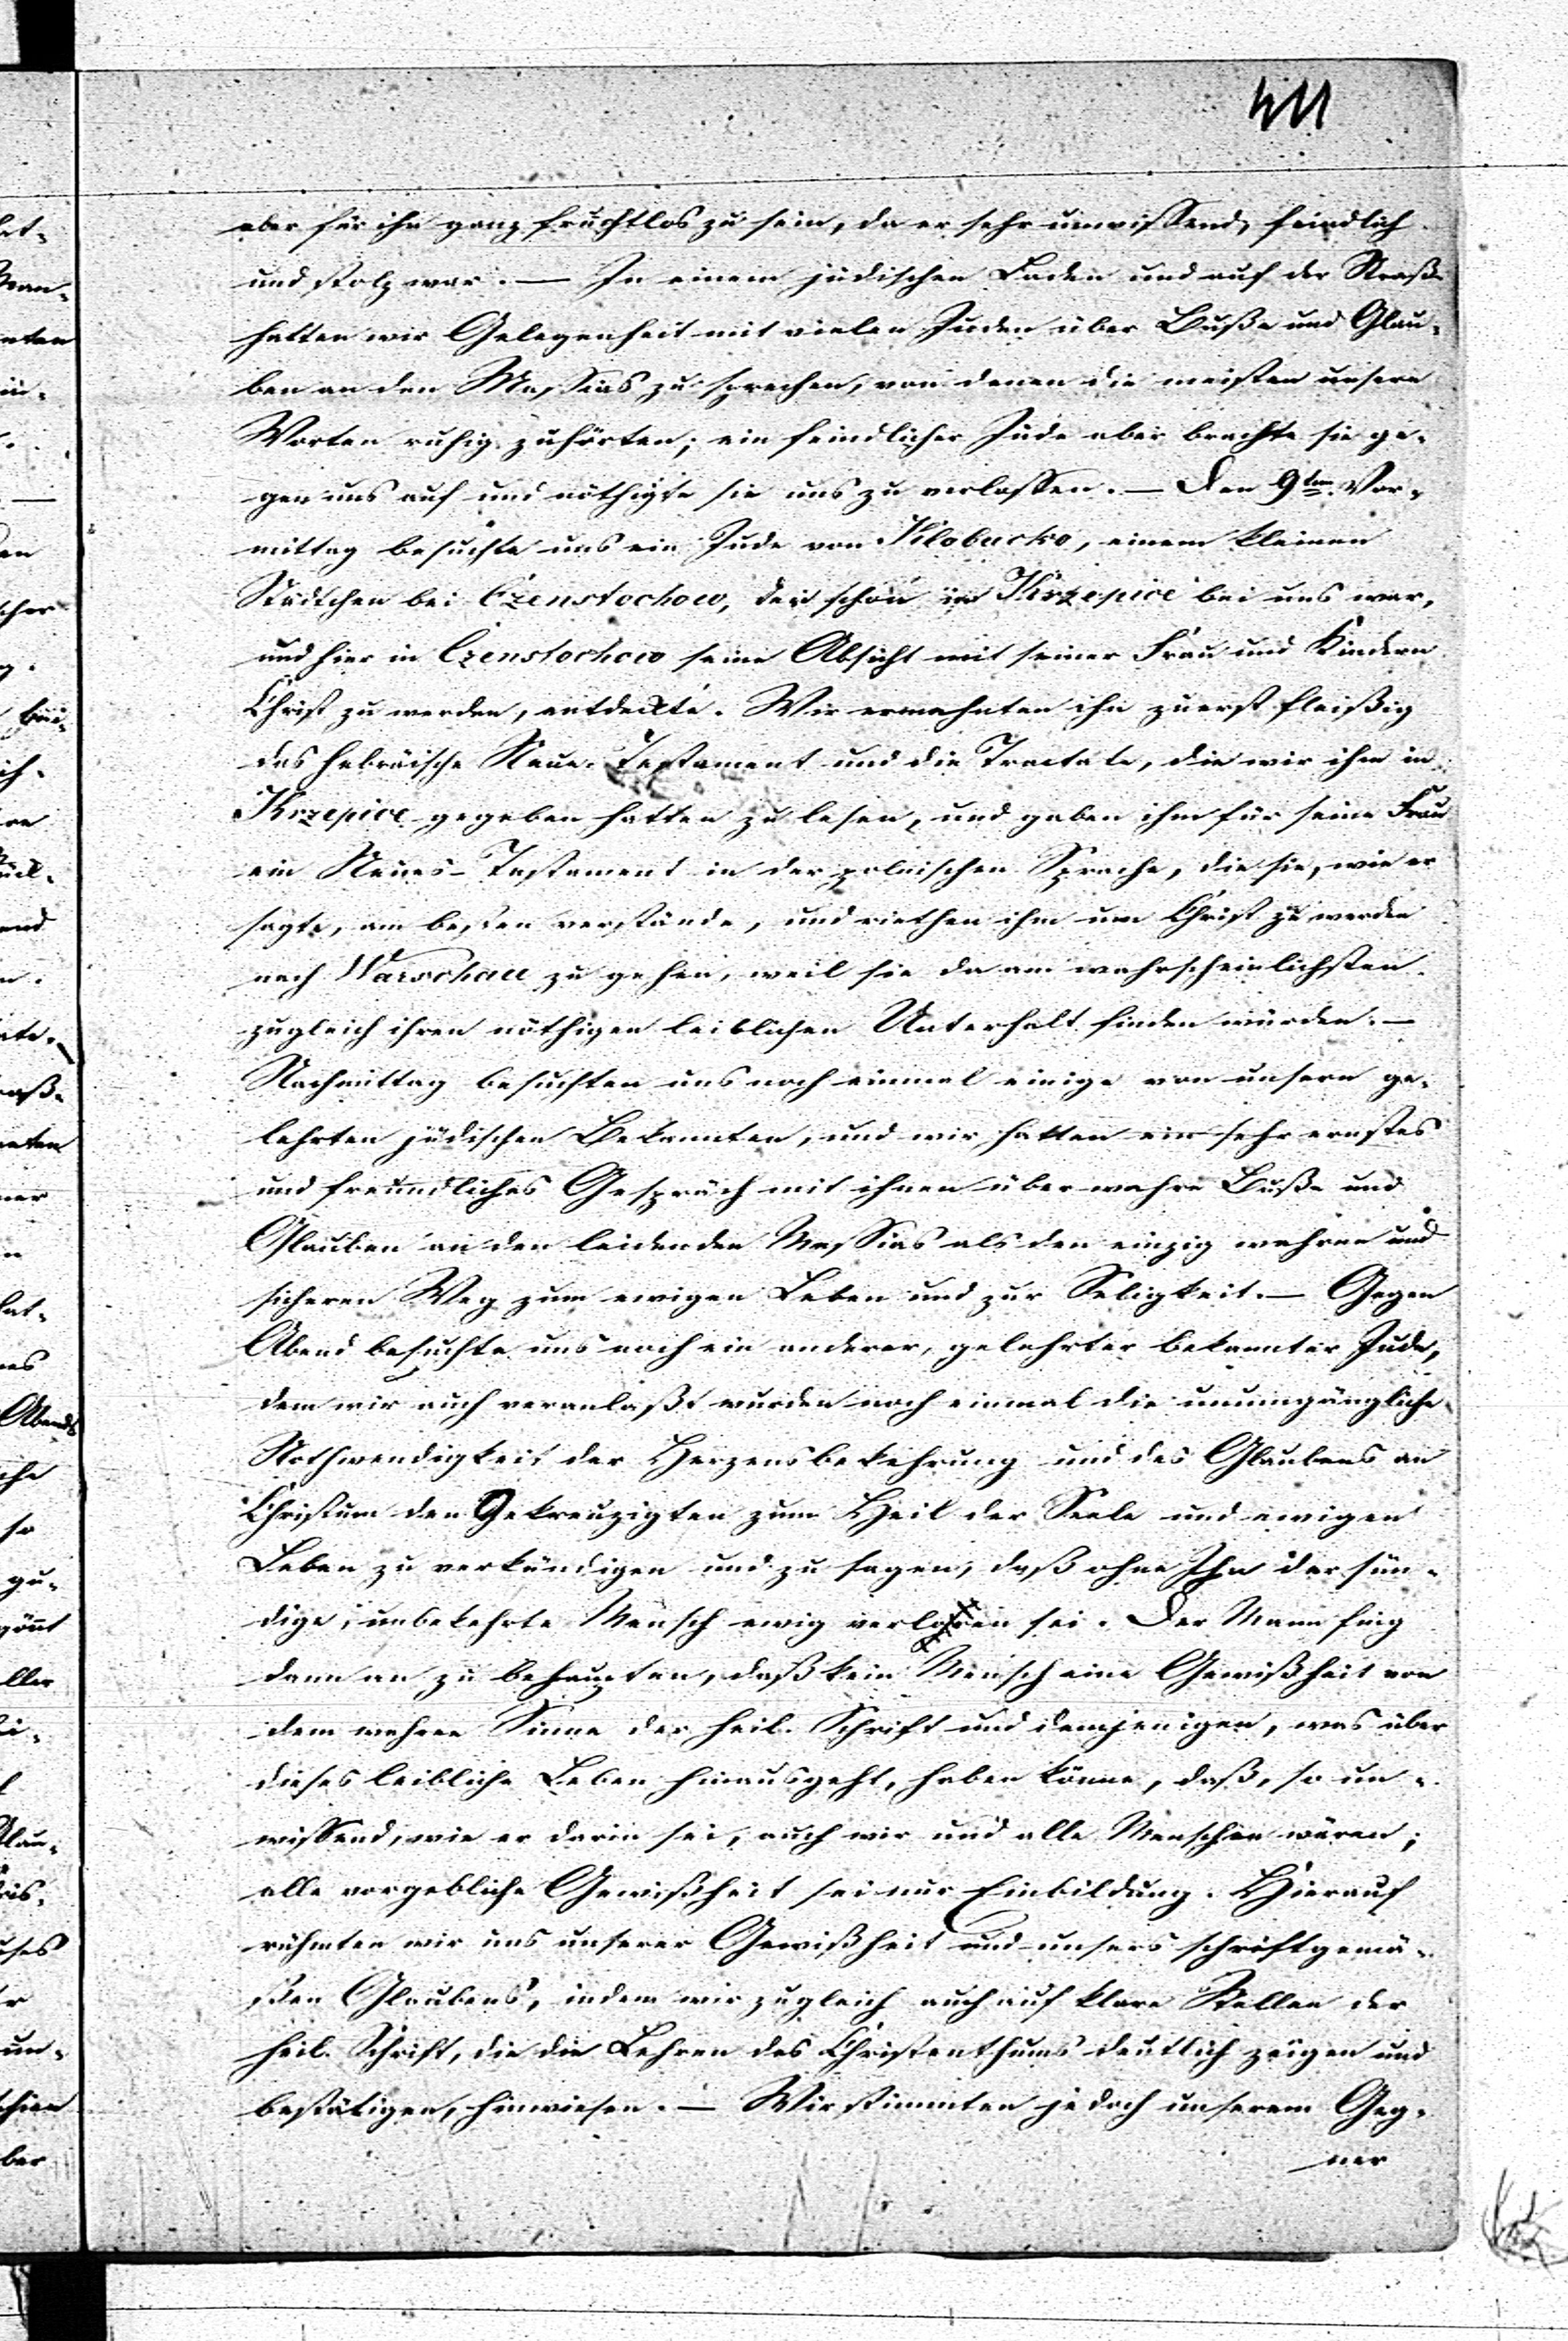 411
aber für ihn ganz fruchtlos zu sein, da er sehr unwissend, feindlich
und stolz war. — In einem jüdischen Laden und auf der Straße
hatten wir Gelegenheit mit vielen Juden über Buße und Glau-
ben an den Messias zu sprechen, von denen die meisten unsern
Worten ruhig zuhörten; ein feindlicher Jude aber brachte sie ge-
gen uns auf und nöthigte sie uns zu verlassen. — Den 9ten Vor-
mittag besuchte uns ein Jude von Klobucko, einem kleinen
Städtchen bei Czenstochow, der schon in Krzepice bei uns war,
und hier in Czenstochow seine Absicht mit seiner Frau und Kindern
Christ zu werden, entdeckte. Wir ermahnten ihn zuerst fleißig
das hebräische Neue-Testament und die Tractate, die wir ihm in
Krzepice gegeben hatten zu lesen, und gaben ihm für seine Frau
ein Neues-Testament in der polnischen Sprache, die sie, wie er
sagte, am besten verstände, und riethen ihm um Christ zu werden
nach Warschau zu gehen, weil sie da am wahrscheinlichsten
zugleich ihren nöthigen leiblichen Unterhalt finden würden. —
Nachmittag besuchten uns noch einmal einige von unsern ge-
lehrten jüdischen Bekannten, und wir hatten ein sehr ernstes
und freundliches Gespräch mit ihnen über wahre Buße und
Glauben an den leidenden Messias als den einzig wahren und
sicheren Weg zum ewigen Leben und zur Seligkeit. — Gegen
Abend besuchte uns noch ein anderer, gelehrter bekannter Jude,
dem wir auch veranlaßt wurden noch einmal die unumgängliche
Nothwendigkeit der Herzensbekehrung und des Glaubens an
Christum den Gekreuzigten zum Heil der Seele und ewigen
Leben zu verkündigen und zu sagen, daß ohne Ihn der sün-
dige, unbekehrte Mensch ewig verloren sei. Der Mann fing
dann an zu behaupten, daß kein Mensch eine Gewißheit von
dem wahren Sinne der heil. Schrift und demjenigen, was über
dieses leibliche Leben hinausgeht, haben könne, daß, so un-
wissend, wie er darin sei, auch wir und alle Menschen wären;
alle vorgebliche Gewißheit sei nur Einbildung. Hierauf
rühmten wir uns unserer Gewißheit und unsers schriftgemä-
ßen Glaubens, indem wir zugleich auch auf klare Stellen der
heil. Schrift, die die Lehren des Christenthums deutlich zeigen und
bestätigen, hinwiesen. — Wir stimmten jedoch unserem Geg-
ner